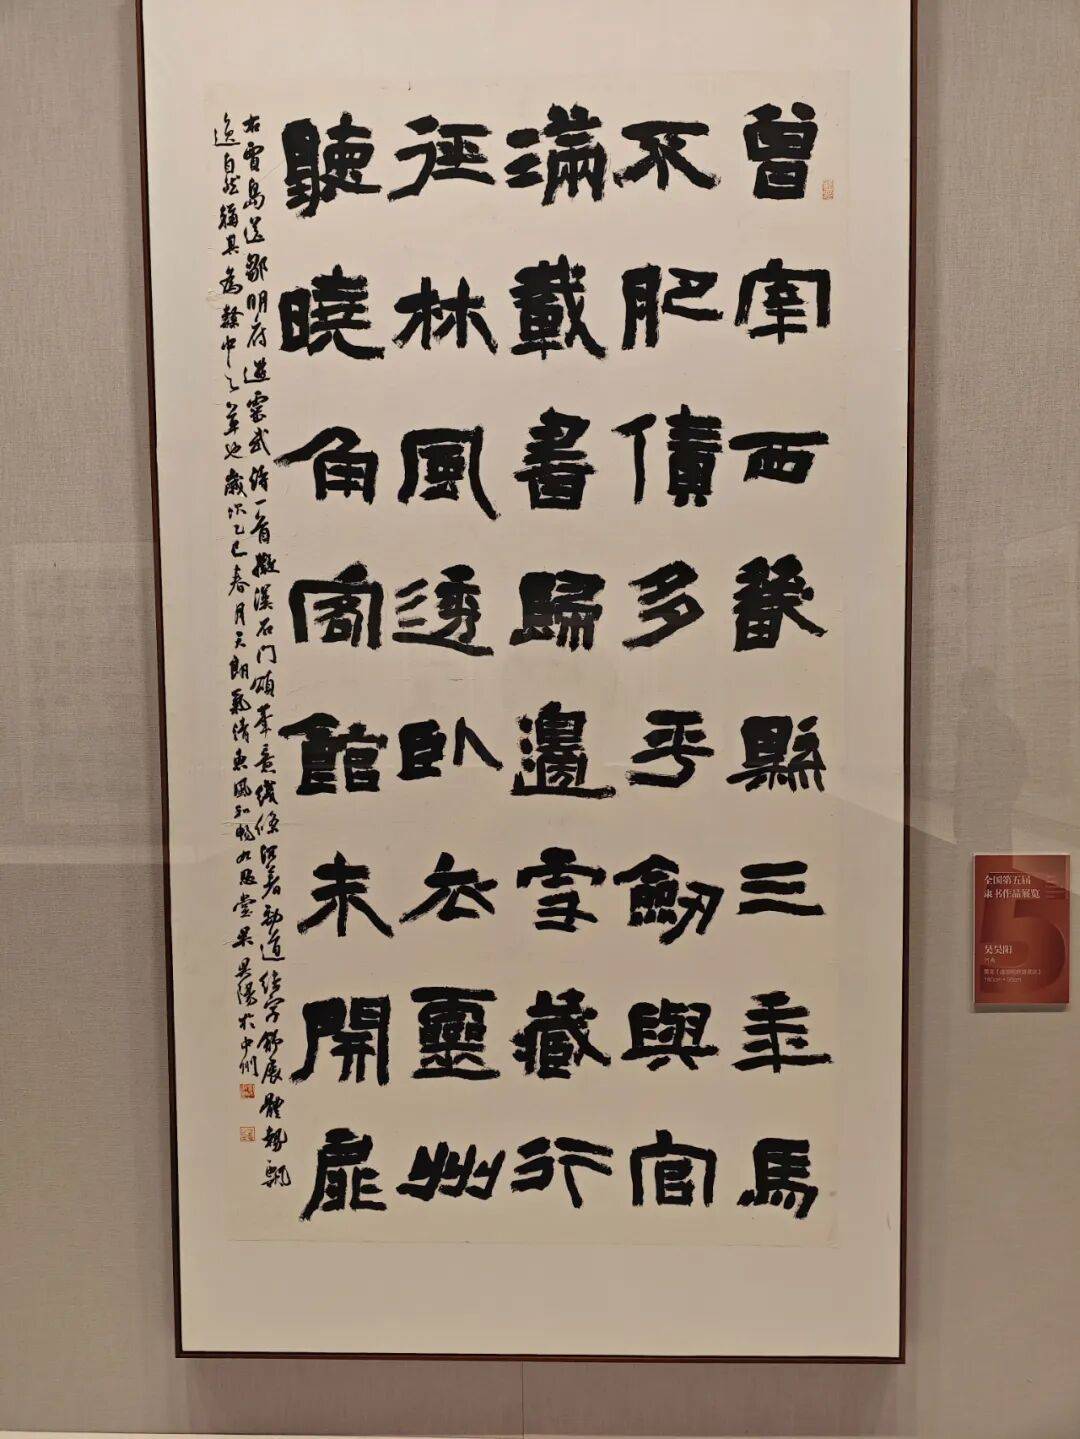 曾宰西畿縣三秊馬
不肥債多平劒與官
滿載書歸邊雪藏行
徑林風透臥衣靈州
聽曉角客館未開扉
右賈島送鄒明府遊靈武詩一首擬漢石門頌筆意線條沉着勁道結字舒展體勢飄
逸自然獨具為隸中之草也歲次乙巳春月天朗氣清惠風和暢於思堂吴昊陽於中州
全国第五届
隶书作品展览
吴昊阳
河南